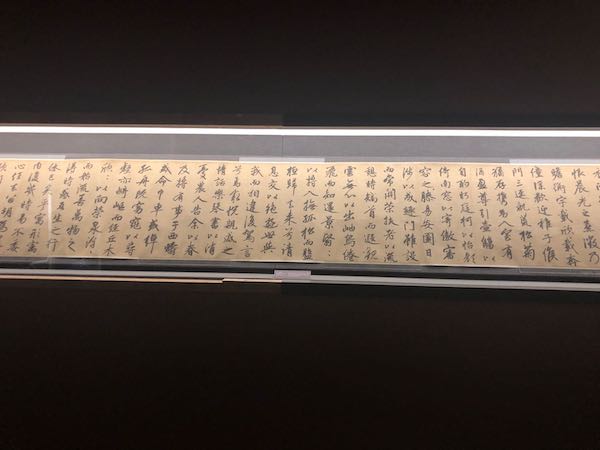 恨晨光之熹微乃
瞻衡宇載欣載奔
僮僕歡迎稚子候
門三逕就荒松菊
猶存携幼入室有
酒盈尊引壺觴以
自酌眄庭柯以怡顔
倚南窓以寄傲審
容膝易安園日
涉以成趣門雖設
而常關策扶老以流
憩時矯首而遐觀
雲無心以出岫鳥倦
飛而知還景翳〻
以將入撫孤松而盤
桓歸去来兮請
息交以絶遊世與
我而相違復駕言
兮焉求悦親戚之
情話樂琴書以消
憂農人告余以春
及將有事于西疇
或命巾車或棹
孤舟既窈窕以尋
壑亦崎嶇而經丘木
欣〻以向榮泉涓〻
而始流善萬物之
得時感吾生之行
休已矣乎寓形宇
内復幾時曷不委
心任去留胡爲